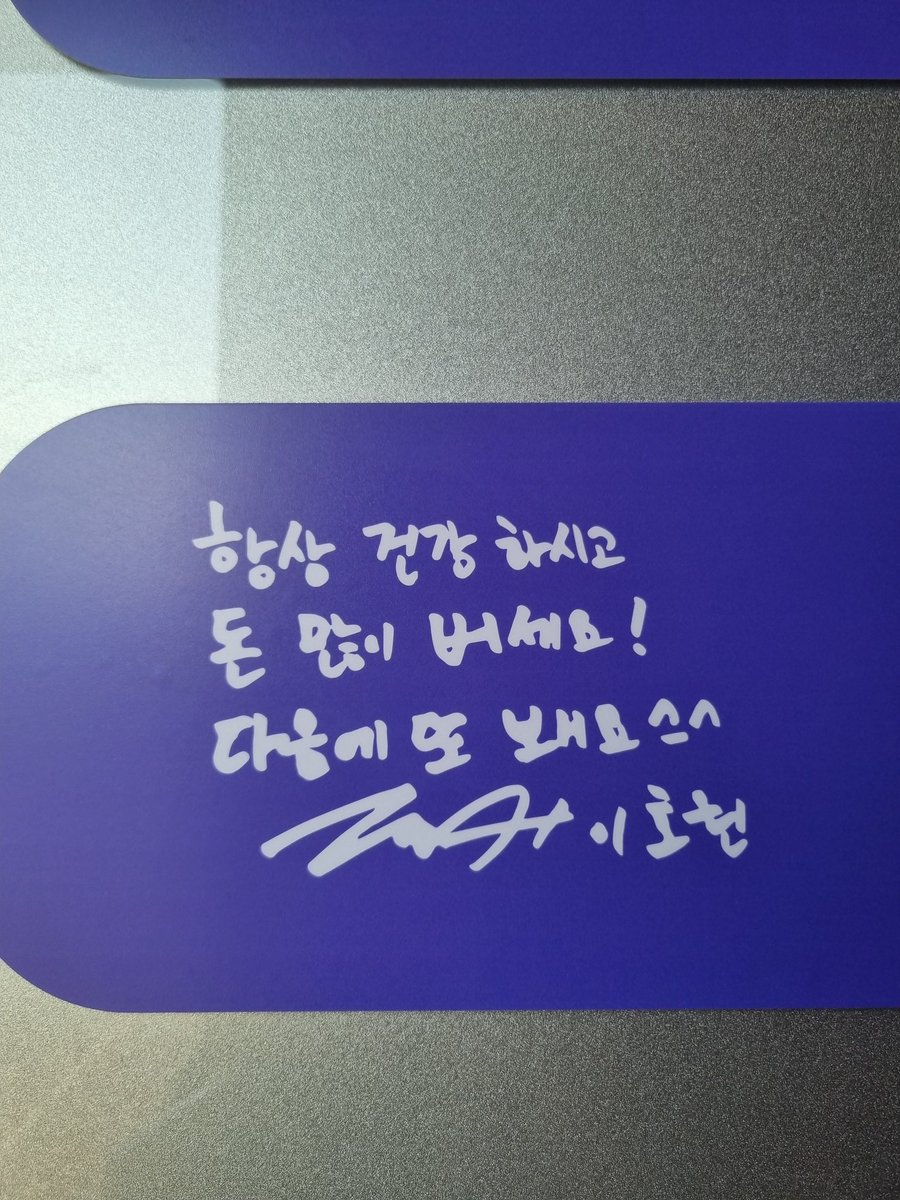 항상 건강 하시고
돈 많이 버세요!
다음에 또 봬요^-^
이호현